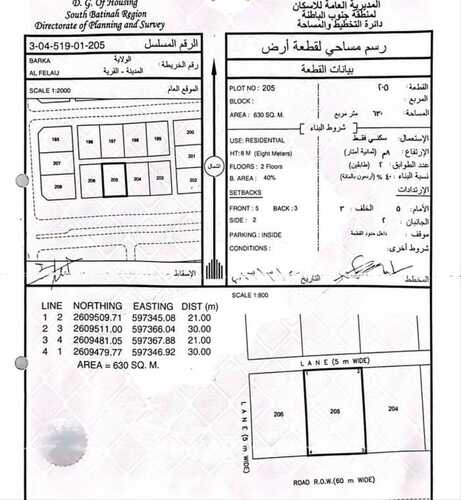 D. G. Of Housing
South Batinah Region
Directorate of Planning and Survey
المديرية العامة للاسكان
لمنطقة جنوب الباطنة
دائرة التخطيط والمساحة
3-04-519-01-205
الرقم المسلسل
رسم مساحي لقطعة أرض
BARKA
الولاية
AL FELAU
المدينة - القرية
رقم الخريطة:
SCALE 1:2000
الموقع العام
195 196 197 198 199 200
206 205 204 203 202 201
208 207
الشمال
الإسقاط
بيانات القطعة
PLOT NO : 205
٢٠٥
القطعة :
BLOCK :
المربع
AREA : 630 SQ. M.
٦٣٠ متر مربع
المساحة:
شروط البناء
USE: RESIDENTIAL
سكني فقط
الإستعمال:
HT: 8 M (Eight Meters)
٨م (ثمانية أمتار)
الإرتفاع:
FLOORS : 2 Floors
٢ (طابقين)
عدد الطوابق:
B. AREA : 40%
٤٠% (أربعون بالمائة)
نسبة البناء:
SETBACKS
الإرتدادات
FRONT : 5 BACK : 3
الخلف: ٣
الأمام: ٥
SIDE : 2
٢
الجانبان:
PARKING : INSIDE
داخل حدود القطعة
موقف:
CONDITIONS :
شروط أخرى:
التاريخ
المخطط
SCALE 1:600
LINE NORTHING EASTING DIST (m)
1 2 2609509.71 597345.08 21.00
2 3 2609511.00 597366.04 30.00
3 4 2609481.05 597367.88 21.00
4 1 2609479.77 597346.92 30.00
AREA = 630 SQ. M.
LANE (5 m WIDE)
LANE (5 m WIDE)
1 2
206 205 204
4 3
ROAD R.O.W.(60 m WIDE)